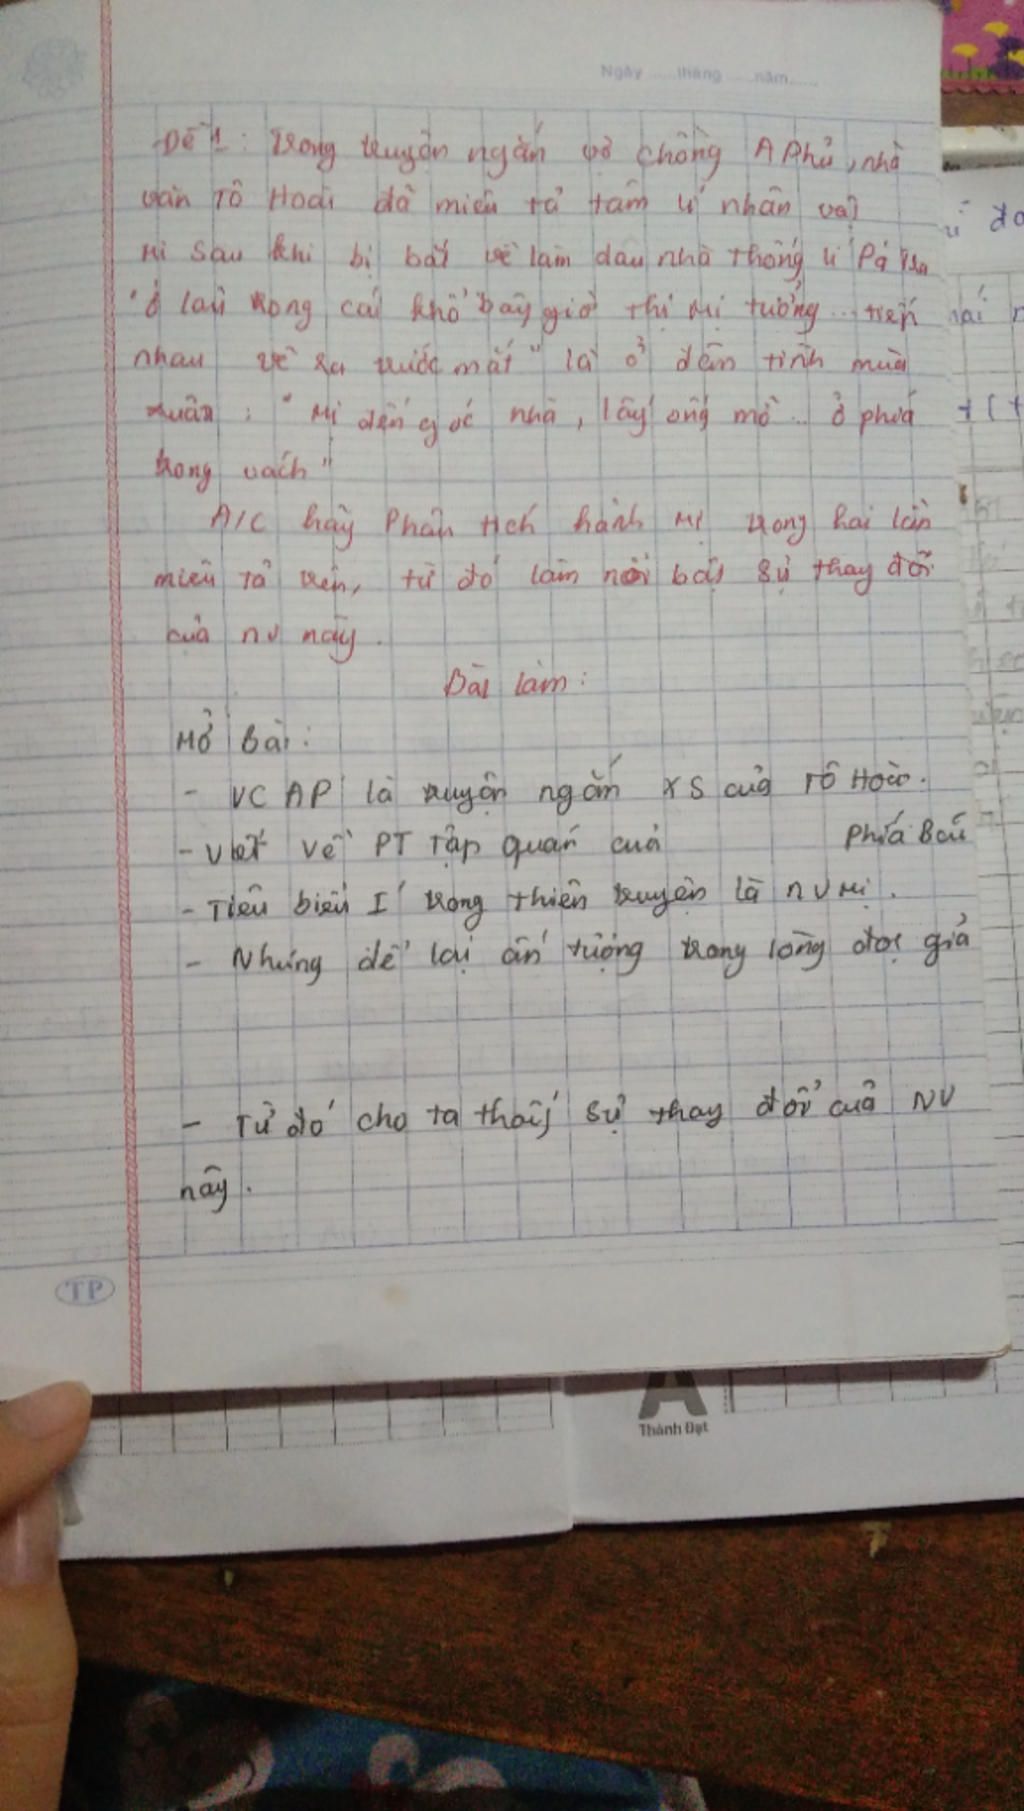 Ngày ......tháng ......năm......
Đề 1: Trong truyện ngắn vợ chồng A Phủ, nhà
văn Tô Hoài đã miêu tả tâm lí nhân vật
Mị sau khi bị bắt về làm dâu nhà thống lí Pá Tra
"ở lâu trong cái khổ bây giờ thì Mị tưởng... tiến
nhau về ra trước mắt" là ở đêm tình mùa
xuân: "Mị đến góc nhà, lấy ống mỡ... ở phía
trong vách"
A/C hãy Phân tích hành Mị trong hai lần
miêu tả trên, từ đó làm nổi bật sự thay đổi
của nv này.
Bài làm:
Mở bài:
- VCAP là truyện ngắn XS của Tô Hoài.
- Viết về PT tập quán của Phía Bắc
- Tiêu biểu I trong thiên truyện là nv Mị.
- Nhưng để lại ấn tượng trong lòng đọc giả
- Từ đó cho ta thấy sự thay đổi của NV
này.
TP
A
Thành Đạt